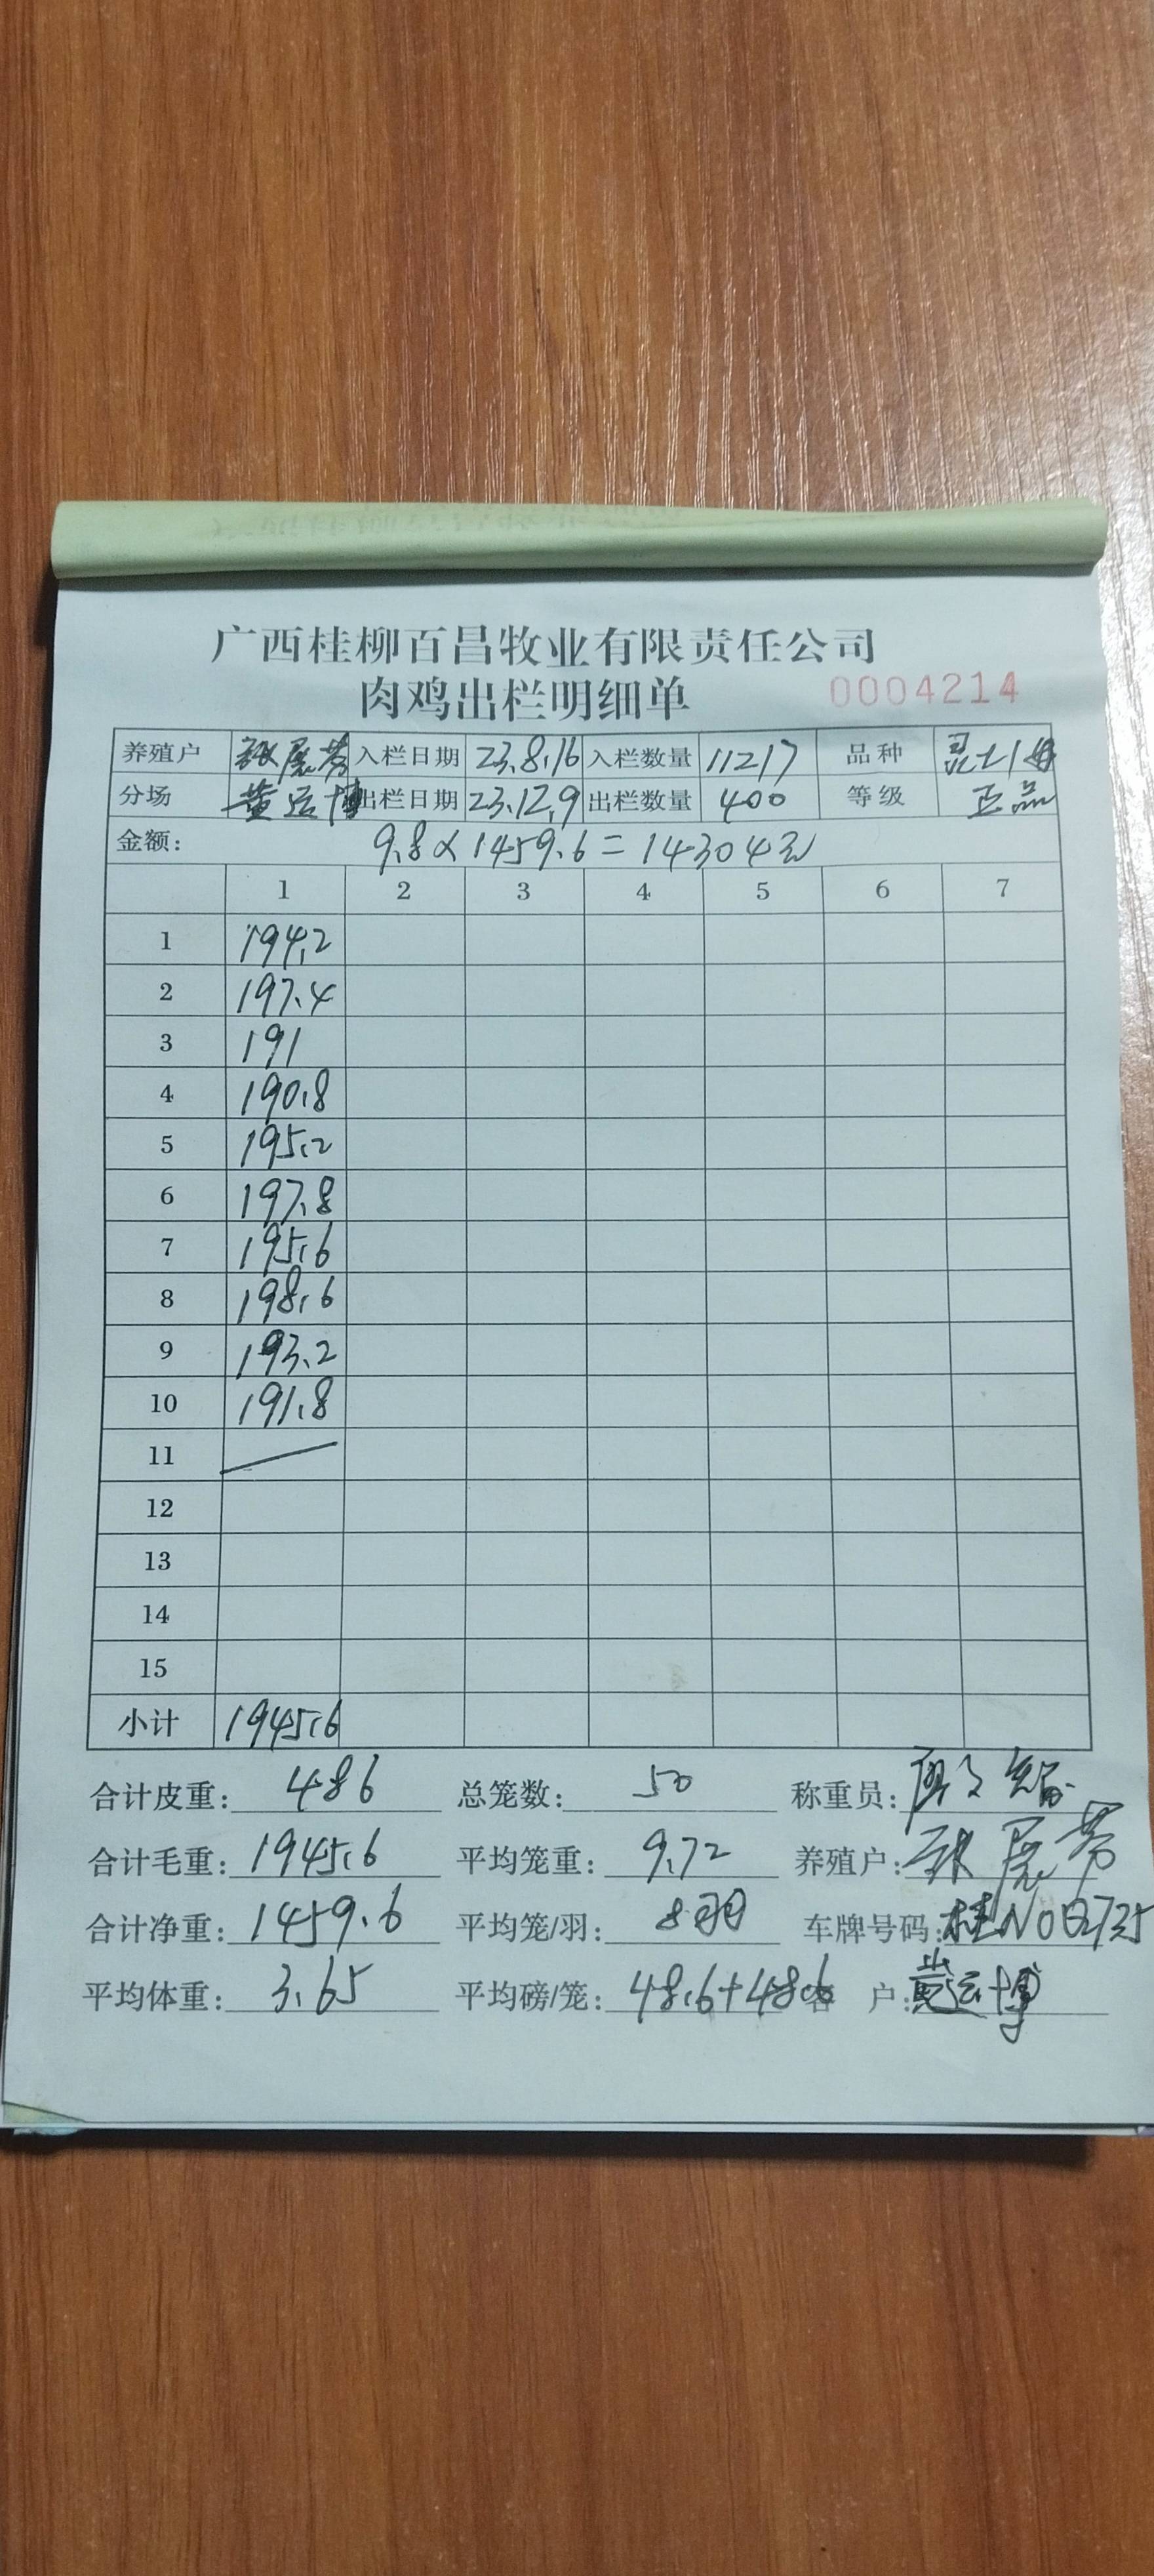 广西桂柳百昌牧业有限责任公司
肉鸡出栏明细单 0004214
养殖户 入栏日期 23.8.16 入栏数量 11217 品种
分场 黄运博 出栏日期 23.12.9 出栏数量 400 等级 正品
金额: 9.8×1459.6=14304元
1 2 3 4 5 6 7
1 194.2
2 197.4
3 191
4 190.8
5 195.2
6 197.8
7 195.6
8 198.6
9 193.2
10 191.8
11
12
13
14
15
小计 1945.6
合计皮重: 486 总笼数: 50 称重员:
合计毛重: 1945.6 平均笼重: 9.72 养殖户:
合计净重: 1459.6 平均笼/羽: 8羽 车牌号码:
平均体重: 3.65 平均磅/笼: 48.6+48.6 客 户: 黄运博